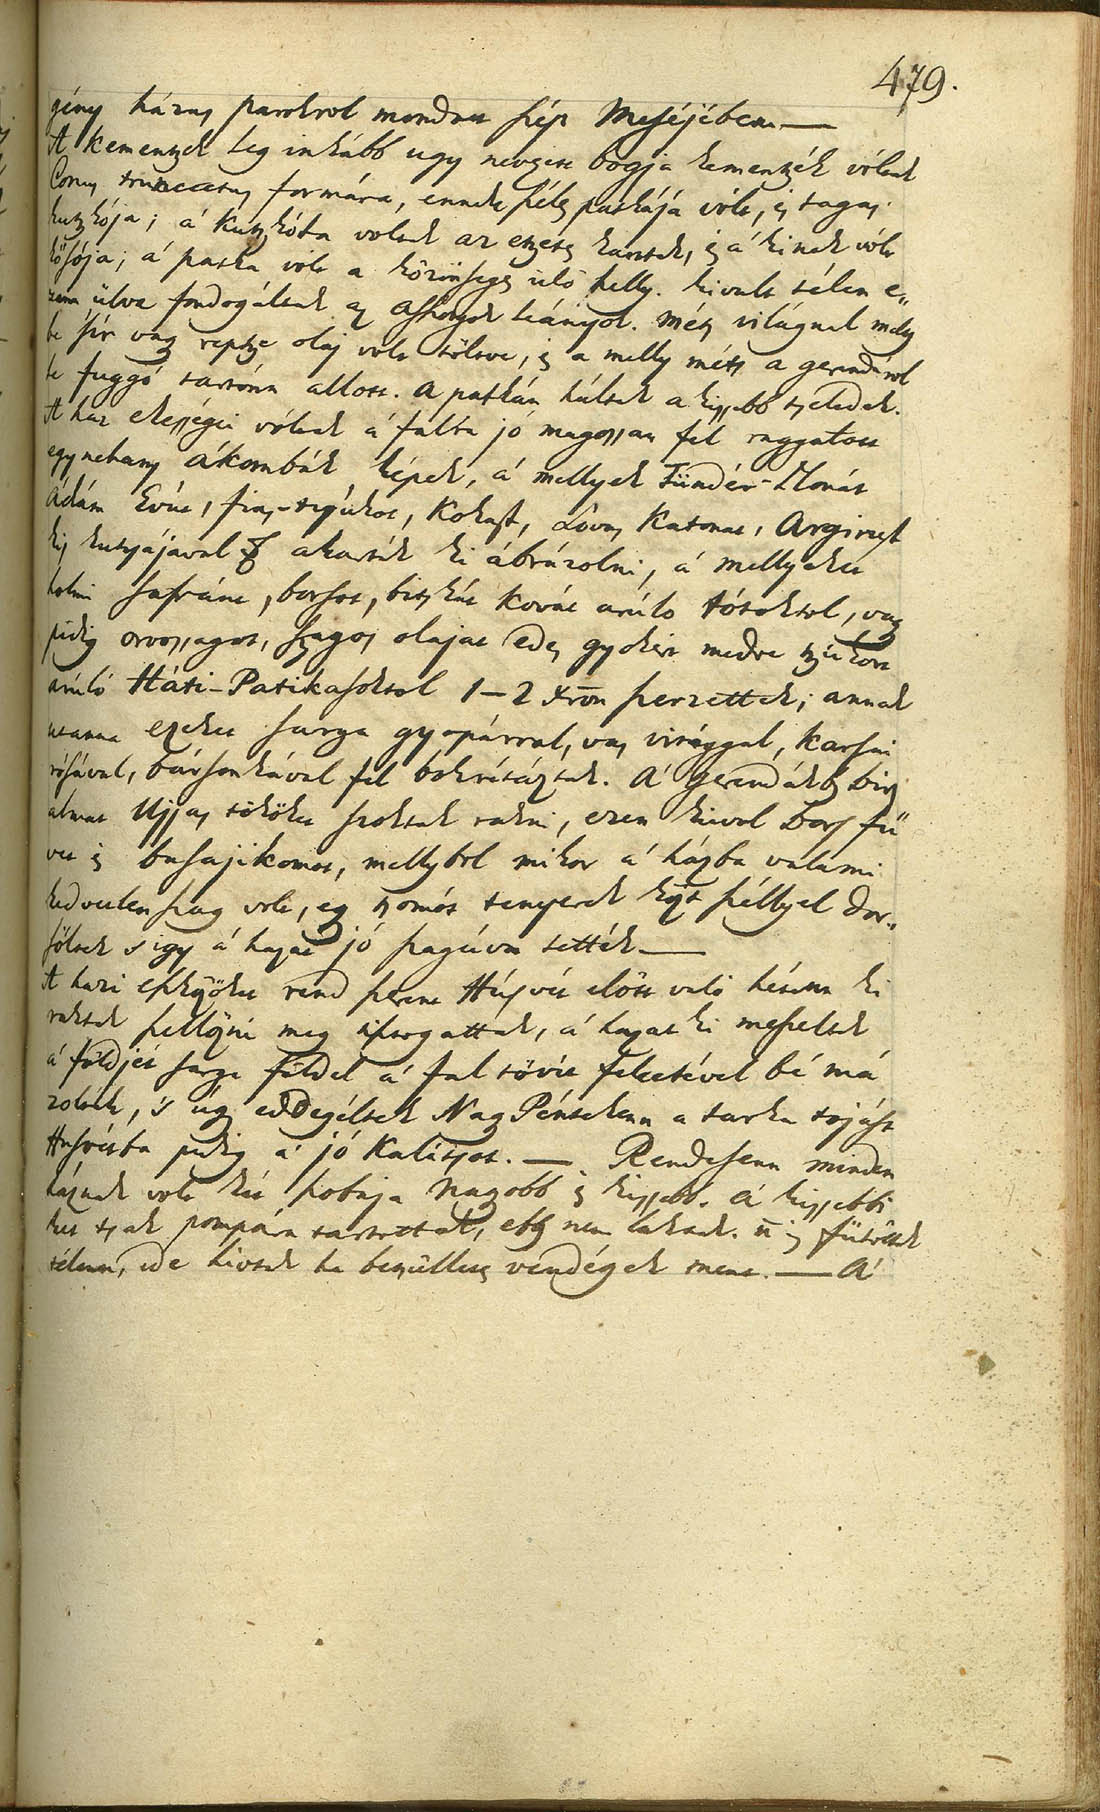 479.
gény házas párokrol mondott szép Meséjében —
A kementzék leg inkább ugy nevezett bogja kementzék vóltak
Conus truncatus formára, ennek széles patkája vólt, és tágas
kutzkója; á kutzkóba voltak az
sósója; á patka vólt a közönséges ülő helly. kivált télen e„
zenn ülve fondogáltak az Aszszonyok leányok. méts világnál melly
be sír vagy reptze olaj volt töltve, és a melly méts a gerendárol
le függő tartónn állott. A patkán háltak a kissebb tselédek.
A ház ékességei vóltak á falra jó magossan fel raggatott
egynehány ákombák képek, á mellyek Tündér-Ilonát
Ádám Évát, fias-tyúkot, Kakast, Lovas Katonát, Argirust
kis kutyájával akarták ki ábrázolni, á mellyeket
holmi sáfránt, borsot, bitskát árúló tótoktol, vagy
pedig orvosságot, szagos olajat édes gyökért medve tzukort
árúló Háti-Patikásoktol 1–2 xron szerzettek; annak
utánna ezeket sárga gyopárral, vas virággal, kassai
rósával, bársonkával fel bokrétázták. Á gerendákba birs
almát Ujjas tököket szoktak rakni, ezen kivül Bors fü
vet és basajikomot, mellyböl mikor á házba valami
kedvetlen szag volt, egy nyomót tenyerek közt széllyel dör„
söltek s igy á házat jó szagúvá tették —
A házi eszközöket rend szerint Húsvét előtt való héten ki
rakták szellözni meg súrogatták, á házat ki meszelték
á földjét sárga földel á fal tövit feketével bé má
zolták, 's úgy eddegéltek Nagy Péntekenn a tarka tojást
Husvétba pedig á jó Kalátsot. — Rendesenn minden
háznak volt két szobája Nagyobb és kissebb. Á kissebbi
ket tsak pompára tartották, ebbe nem laktak. nem is fütöttek
télenn, ide hivták be betsülletes vendégek ment. — A'